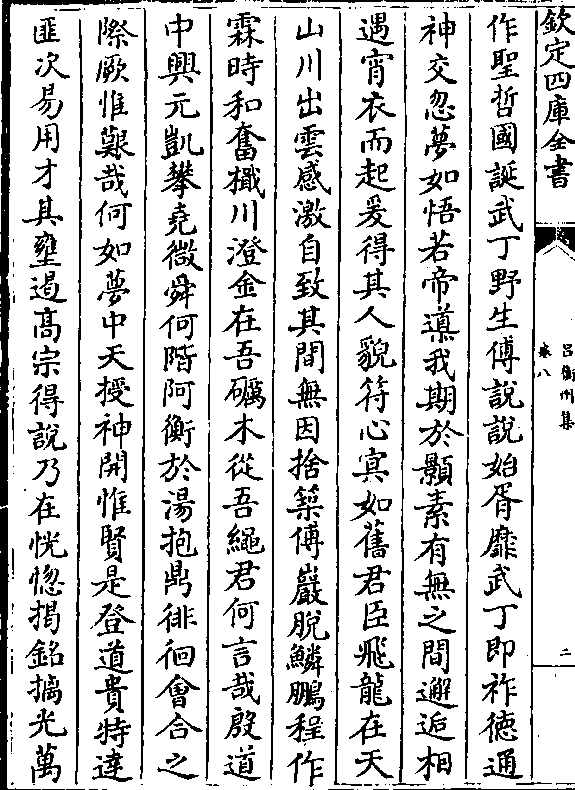 欽定四庫全書
呂衡州集
卷八
二
作聖哲國誕武丁野生傅說說始胥靡武丁即祚徳通
神交忽夢如悟若帝導我期於顥素有無之間邂逅相
遇宵衣而起爰得其人貌符心寘如舊君臣飛龍在天
山川出雲感激自致其間無因捨築傅巖脫鱗鵬程作
霖時和奮檝川澄金在吾礪木從吾繩君何言哉殷道
中興元凱攀堯微舜何階阿衡於湯抱鼎徘徊會合之
際厥惟艱哉何如夢中天授神開惟賢是登道貴特達
匪次易用才其壅遏髙宗得說乃在恍惚掲銘摛光萬